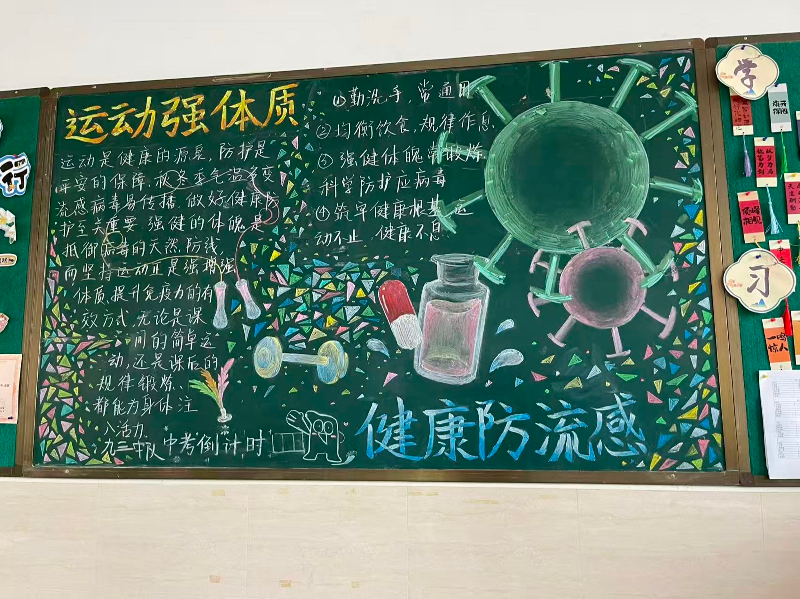 运动强体质
运动是健康的源泉,防护是
平安的保障,秋冬季气温多变
流感病毒易传播,做好健康防
护至关重要,强健的体魄是
抵御病毒的天然防线,
而坚持运动正是强
体质,提升免疫力的有
效方式,无论是课
间的简单运
动,还是课后的
规律锻炼,
都能为身体注
入活力。
九三中队中考倒计时
①勤洗手,常通风
②均衡饮食,规律作息
③强健体魄常锻炼
科学防护应病毒
④筑牢健康根基,运
动不止,健康不息
健康防流感
行
学
习
一鸣
惊人